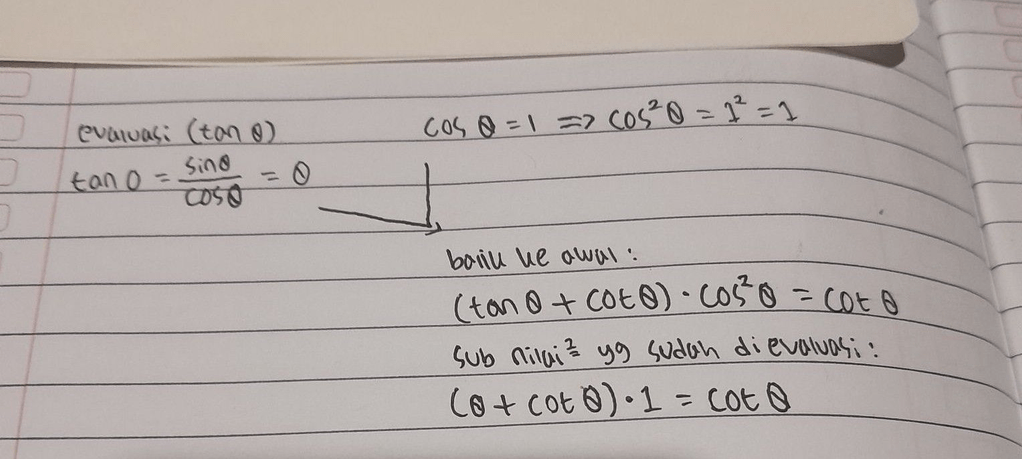 evaluasi (tan θ)
tan θ = sinθ/cosθ = θ
cos θ = 1 => cos²θ = 1² = 1
balik ke awal :
(tan θ + cot θ) · cos²θ = cot θ
sub nilai² yg sudah di evaluasi :
(θ + cot θ) · 1 = cot θ